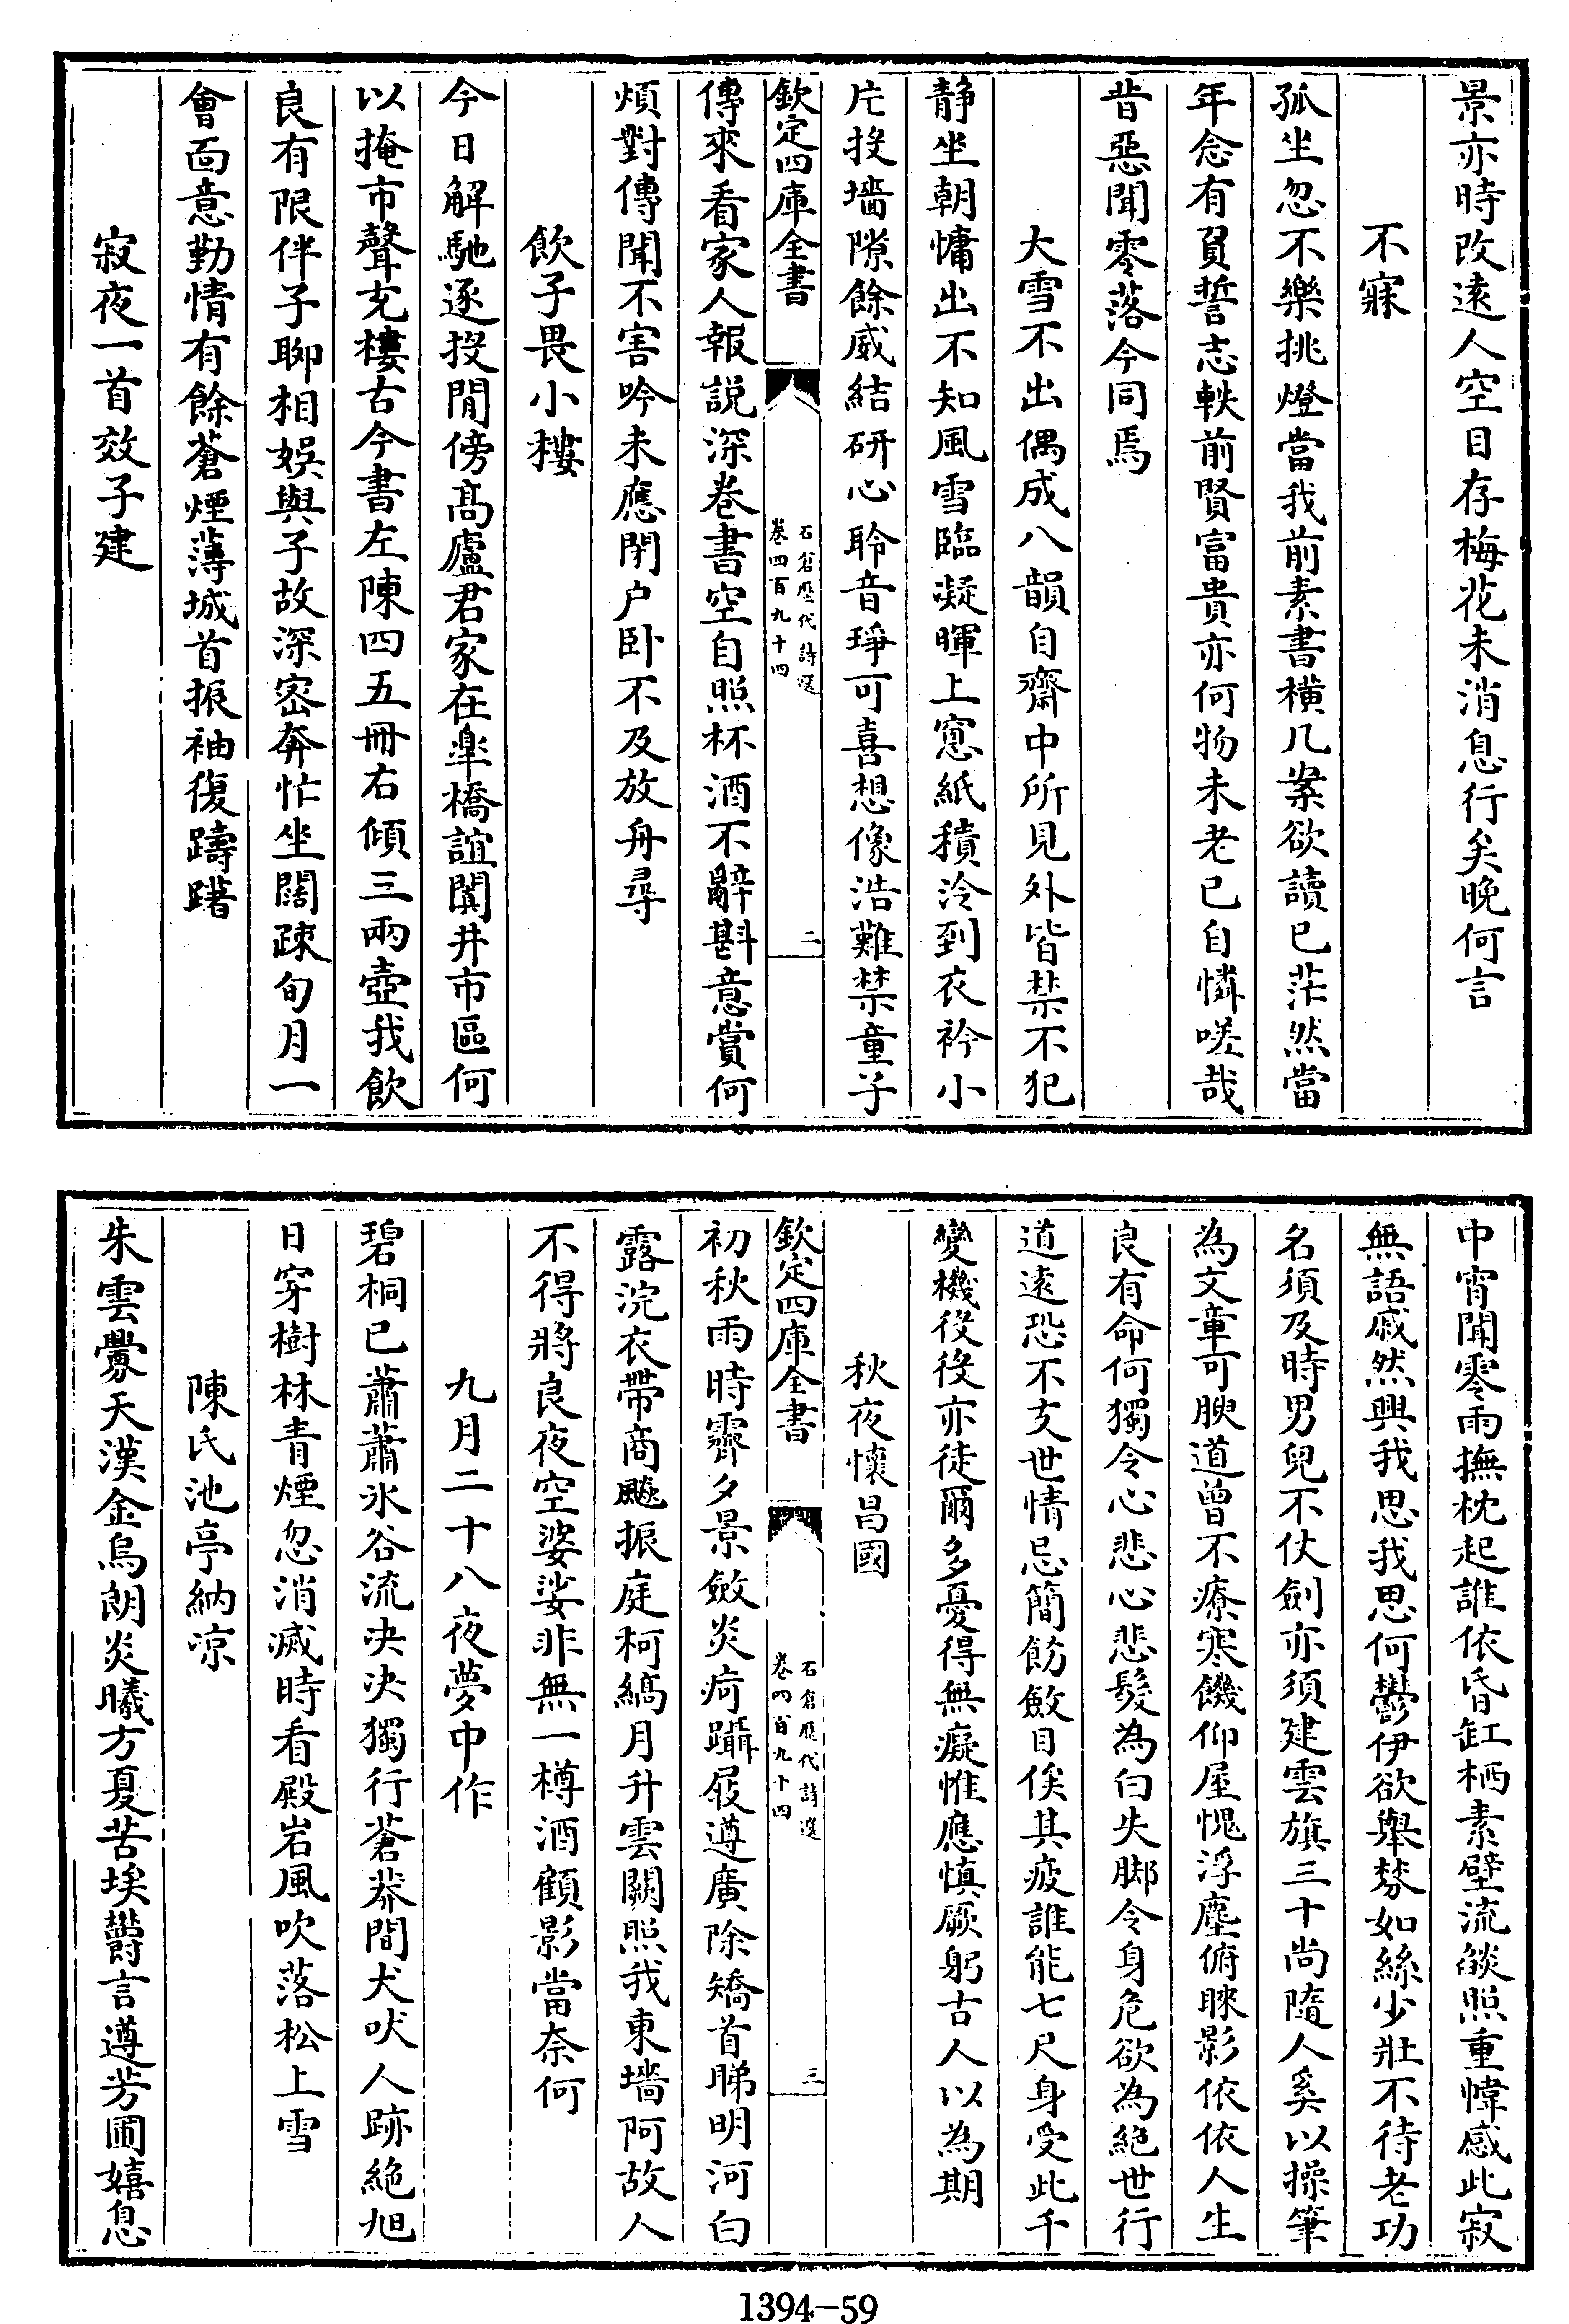 景亦時改遠人空目存梅花未消息行矣晚何言
不寐
孤坐忽不樂挑燈當我前素書橫几案欲讀已茫然當
年念有負誓志軼前賢富貴亦何物未老已自憐嗟哉
昔惡聞零落今同焉
大雪不出偶成八韻自齋中所見外皆禁不犯
靜坐朝慵出不知風雪臨凝暉上窻紙積冷到衣衿小
片投墻隙餘威結研心聆音琤可喜想像浩難禁童子
欽定四庫全書
石倉歷代詩選
卷四百九十四
二
傳來看家人報説深卷書空自照杯酒不辭斟意賞何
煩對傳聞不害吟未應閉户卧不及放舟尋
飲子畏小樓
今日解馳逐投閒傍髙廬君家在臯橋誼闐井市區何
以掩市聲充樓古今書左陳四五冊右傾三兩壺我飲
良有限伴子聊相娛與子故深密奔忙坐闊疎旬月一
會面意勤情有餘蒼煙薄城首振袖復躊躇
寂夜一首效子建
中宵聞零雨撫枕起誰依昏缸栖素壁流燄照重幃感此寂
無語戚然興我思我思何鬱伊欲舉棼如絲少壯不待老功
名須及時男兒不仗劍亦須建雲旗三十尚隨人奚以操筆
為文章可腴道曾不療寒饑仰屋愧浮塵俯睐影依依人生
良有命何獨令心悲心悲髮為白失脚令身危欲為絶世行
道遠恐不支世情忌簡飭斂目俟其疲誰能七尺身受此千
變機役役亦徒爾多憂得無癡惟應慎厥躬古人以為期
秋夜懷昌國
欽定四庫全書
石倉歷代詩選
卷四百九十四
三
初秋雨時霽夕景斂炎疴躡屐遵廣除矯首睇明河白
露浣衣帶商飈振庭柯縞月升雲闕照我東墻阿故人
不得將良夜空婆娑非無一樽酒顧影當奈何
九月二十八夜夢中作
碧桐已蕭蕭氷谷流决决獨行蒼莽間犬吠人跡絶旭
日穿樹林青煙忽消滅時看殿岩風吹落松上雪
陳氏池亭納凉
朱雲爨天漢金烏朗炎曦方夏苦埃欝言遵芳圃嬉息
1394-59